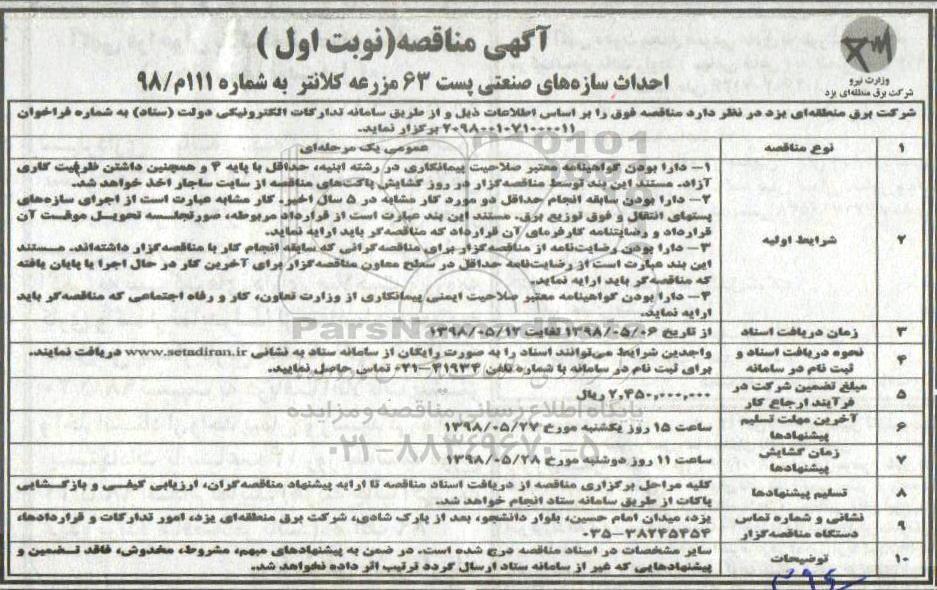 آگهی مناقصه(نوبت اول )
احداث سازه‌های صنعتی پست ۶۳ مزرعه کلانتر به شماره ۱۱۱م/۹۸
وزارت نیرو
شرکت برق منطقه‌ای یزد
شرکت برق منطقه‌ای یزد در نظر دارد مناقصه فوق را بر اساس اطلاعات ذیل و از طریق سامانه تدارکات الکترونیکی دولت (ستاد) به شماره فراخوان
۲۰۹۸۰۰۱۰۷۱۰۰۰۰۱۱ برگزار نماید.
۱ نوع مناقصه عمومی یک مرحله‌ای
۲ شرایط اولیه
۱– دارا بودن گواهینامه معتبر صلاحیت پیمانکاری در رشته ابنیه، حداقل با پایه ۴ و همچنین داشتن ظرفیت کاری
آزاد. مستند این بند توسط مناقصه‌گزار در روز گشایش پاکت‌های مناقصه از سایت ساجار اخذ خواهد شد.
۲– دارا بودن سابقه انجام حداقل دو مورد کار مشابه در ۵ سال اخیر. کار مشابه عبارت است از اجرای سازه‌های
پستهای انتقال و فوق توزیع برق. مستند این بند عبارت است از قرارداد مربوطه، صورتجلسه تحویل موقت آن
قرارداد و رضایتنامه کارفرمای آن قرارداد که مناقصه‌گر باید ارایه نماید.
۳– دارا بودن رضایت‌نامه از مناقصه‌گزار برای مناقصه‌گرانی که سابقه انجام کار با مناقصه‌گزار داشته‌اند. مستند
این بند عبارت است از رضایت‌نامه حداقل در سطح معاون مناقصه‌گزار برای آخرین کار در حال اجرا یا پایان یافته
که مناقصه‌گر باید ارایه نماید.
۴– دارا بودن گواهینامه معتبر صلاحیت ایمنی پیمانکاری از وزارت تعاون، کار و رفاه اجتماعی که مناقصه‌گر باید
ارایه نماید.
۳ زمان دریافت اسناد از تاریخ ۱۳۹۸/۰۵/۰۶ لغایت ۱۳۹۸/۰۵/۱۲
۴ نحوه دریافت اسناد و ثبت نام در سامانه
واجدین شرایط می‌توانند اسناد را به صورت رایگان از سامانه ستاد به نشانی www.setadiran.ir دریافت نمایند.
برای ثبت نام در سامانه با شماره تلفن ۴۱۹۳۴–۰۲۱ تماس حاصل نمایید.
۵ مبلغ تضمین شرکت در فرآیند ارجاع کار ۲,۴۵۰,۰۰۰,۰۰۰ ریال
۶ آخرین مهلت تسلیم پیشنهادها ساعت ۱۵ روز یکشنبه مورخ ۱۳۹۸/۰۵/۲۷
۷ زمان گشایش پیشنهادها ساعت ۱۱ روز دوشنبه مورخ ۱۳۹۸/۰۵/۲۸
۸ تسلیم پیشنهادها
کلیه مراحل برگزاری مناقصه از دریافت اسناد مناقصه تا ارایه پیشنهاد مناقصه‌گران، ارزیابی کیفی و بازگشایی
پاکات از طریق سامانه ستاد انجام خواهد شد.
۹ نشانی و شماره تماس دستگاه مناقصه‌گزار
یزد، میدان امام حسین، بلوار دانشجو، بعد از پارک شادی، شرکت برق منطقه‌ای یزد، امور تدارکات و قراردادها،
۰۳۵–۳۸۲۴۵۴۵۴
۱۰ توضیحات
سایر مشخصات در اسناد مناقصه درج شده است. در ضمن به پیشنهادهای مبهم، مشروط، مخدوش، فاقد تضمین و
پیشنهادهایی که غیر از سامانه ستاد ارسال گردد ترتیب اثر داده نخواهد شد.
ParsNamadData
پایگاه اطلاع رسانی مناقصه و مزایده
۰۲۱–۸۸۳۴۹۶۷۰–۵